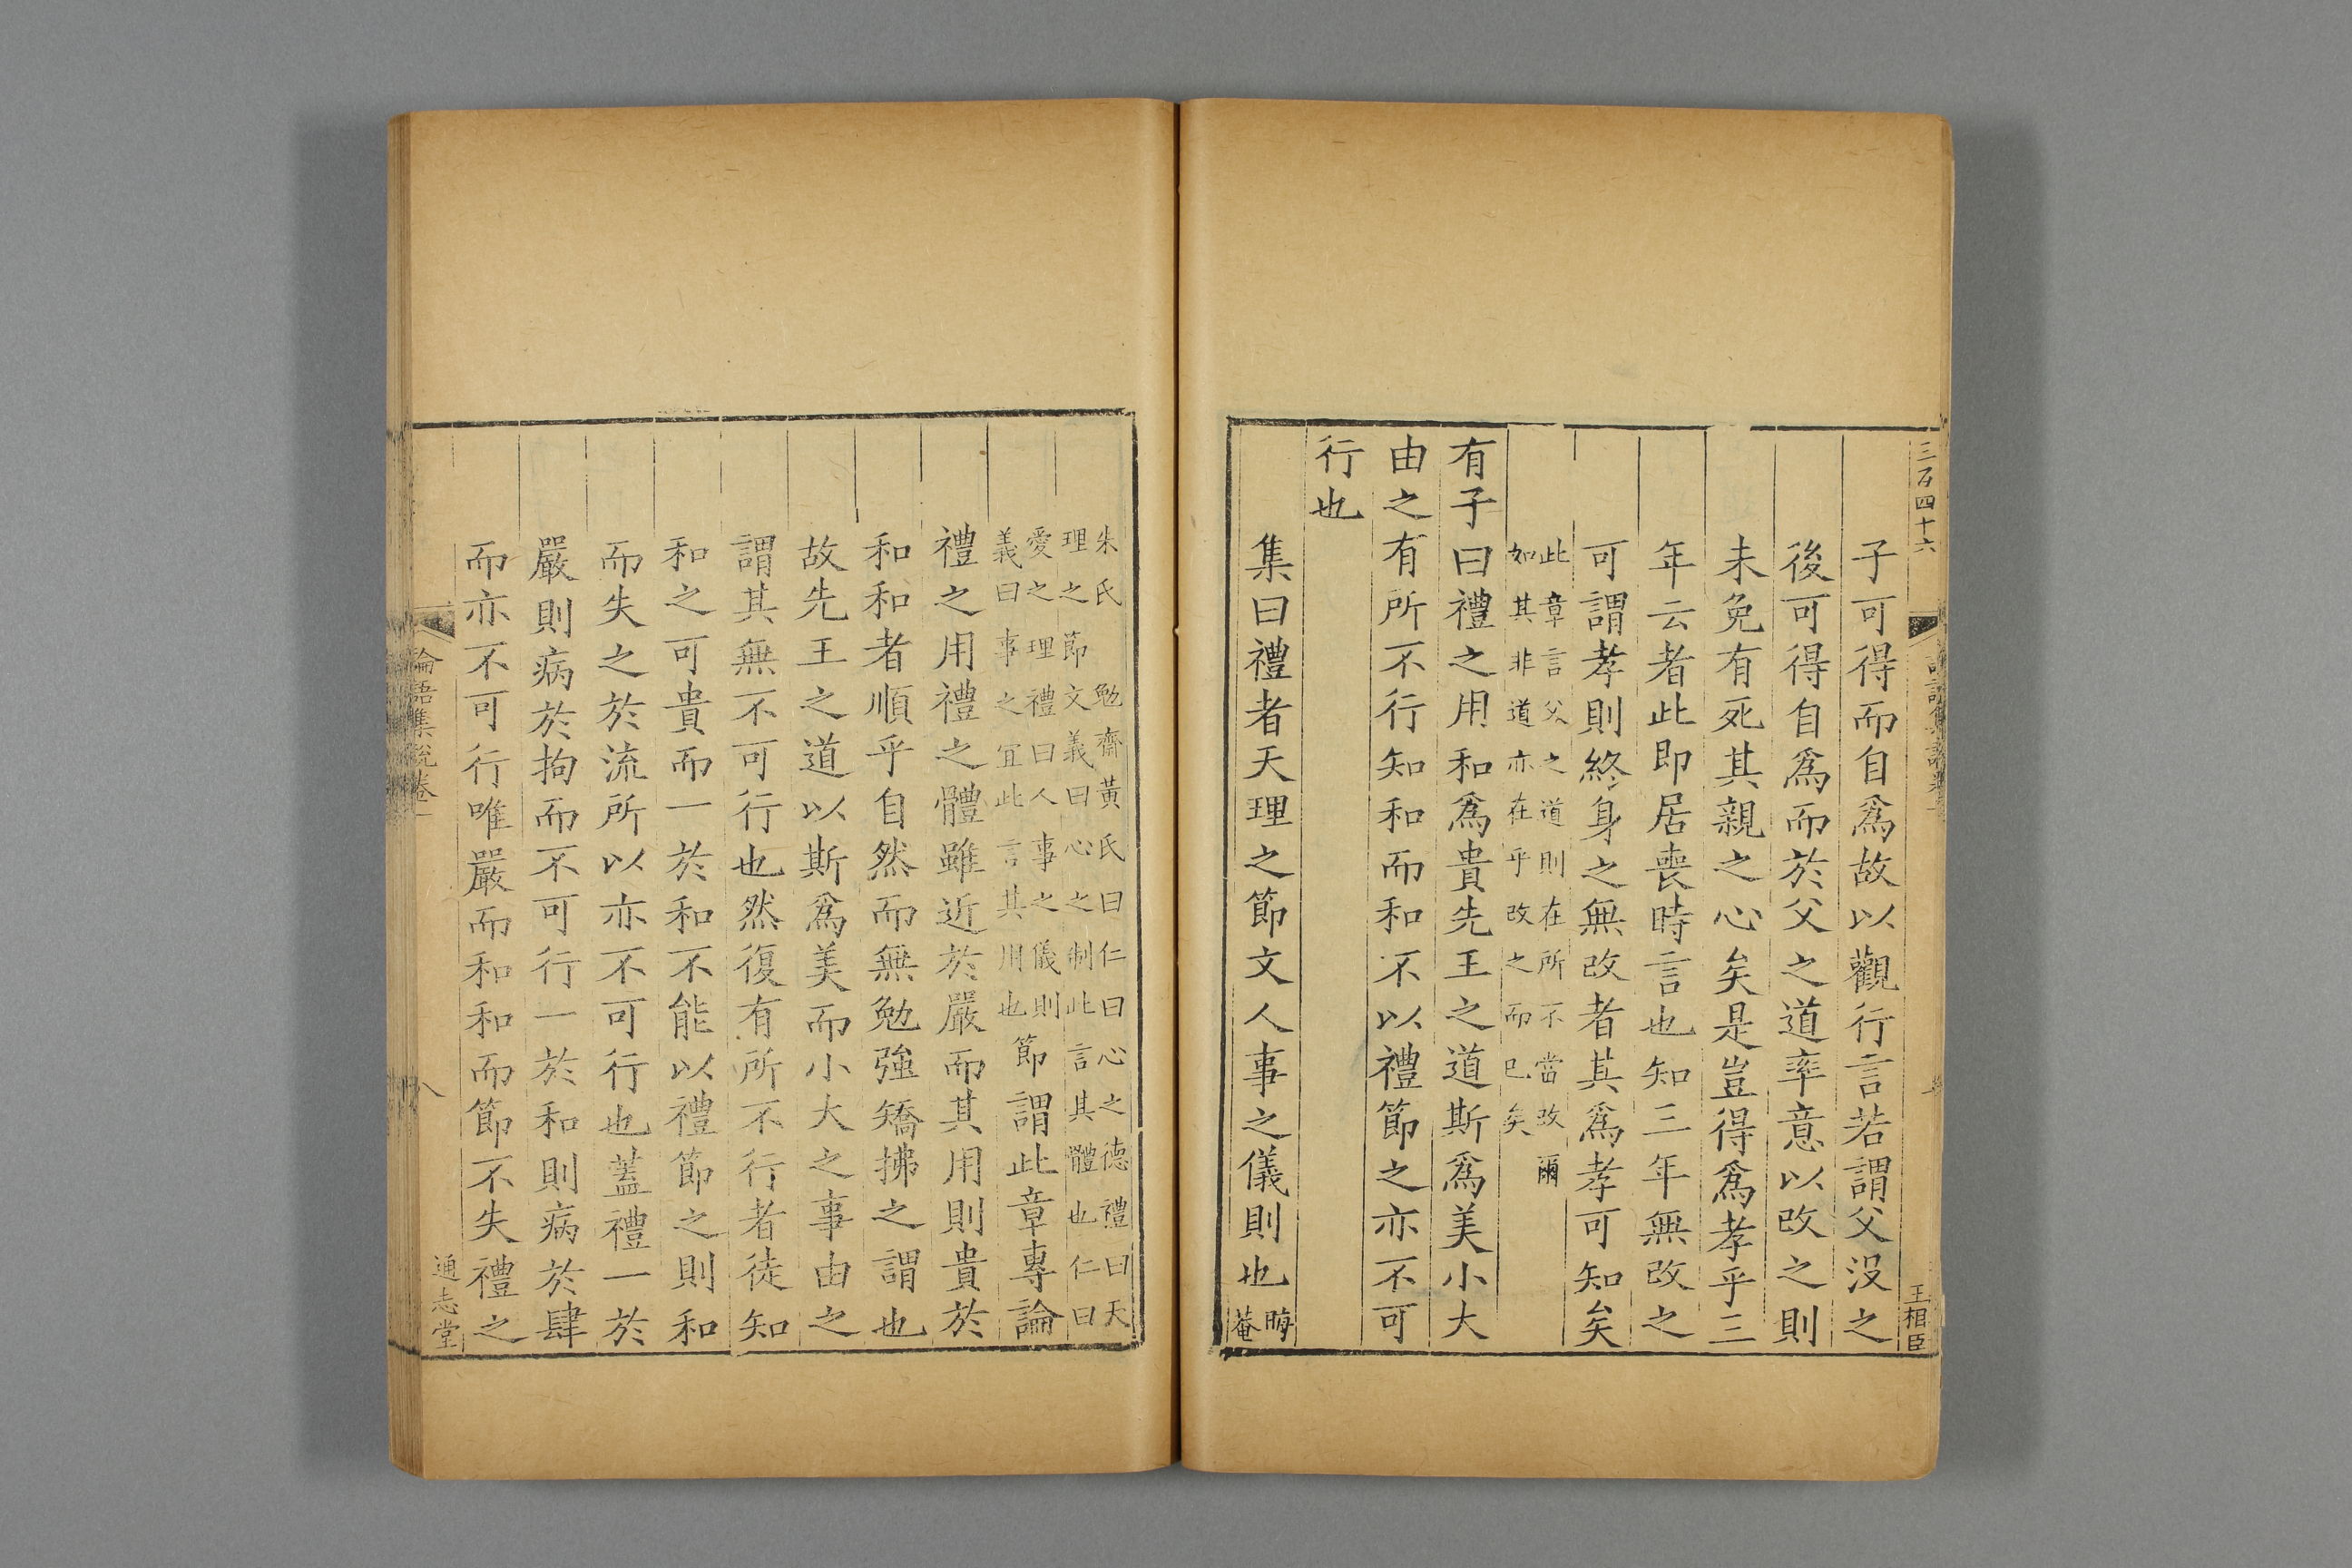 三百四十六
王相臣
子可得而自爲故以觀行言若謂父沒之
後可得自爲而於父之道率意以改之則
未免有死其親之心矣是豈得爲孝乎三
年云者此即居喪時言也知三年無改之
可謂孝則終身之無改者其爲孝可知矣
此章言父之道則在所不當改爾
如其非道亦在乎改之而已矣
有子曰禮之用和爲貴先王之道斯爲美小大
由之有所不行知和而和不以禮節之亦不可
行也
集曰禮者天理之節文人事之儀則也晦
菴
朱氏　勉齋黃氏曰仁曰心之德禮曰天
理之節文義曰心之制此言其體也仁曰
愛之理禮曰人事之儀則
義曰事之宜此言其用也
節謂此章專論
禮之用禮之體雖近於嚴而其用則貴於
和和者順乎自然而無勉強矯拂之謂也
故先王之道以斯爲美而小大之事由之
謂其無不可行也然復有所不行者徒知
和之可貴而一於和不能以禮節之則和
而失之於流所以亦不可行也蓋禮一於
嚴則病於拘而不可行一於和則病於肆
而亦不可行唯嚴而和和而節不失禮之
論語集說卷一
八
通志堂